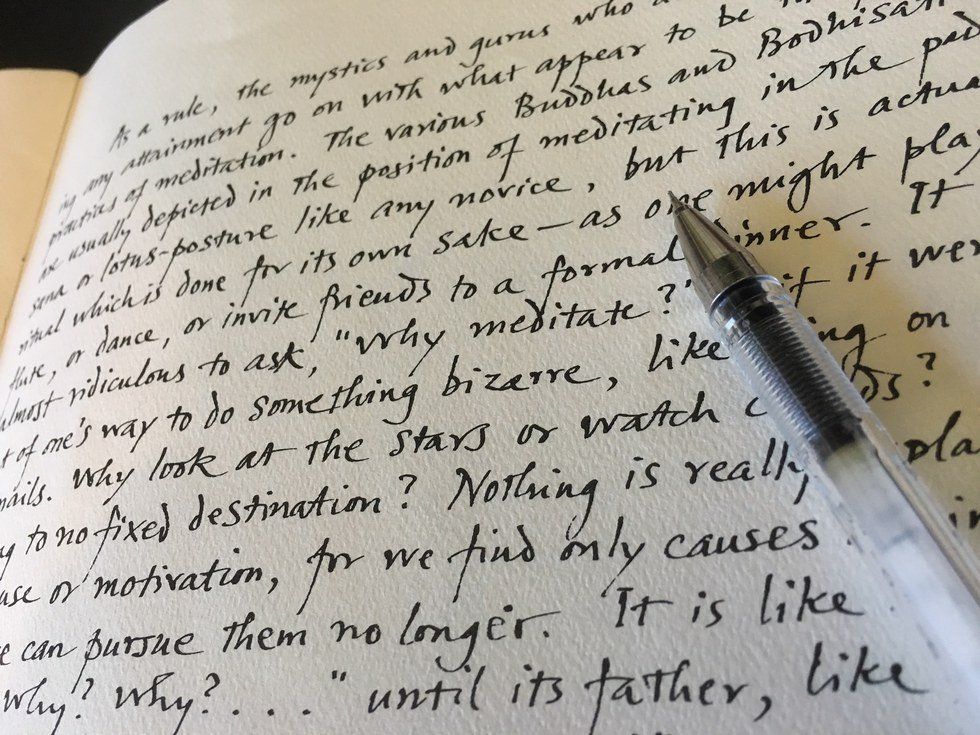 As a rule, the mystics and gurus who
any attainment go on with what appear to be
practices of meditation. The various Buddhas and Bodhisat
are usually depicted in the position of meditating in the pad
sana or lotus-posture like any novice, but this is actua
ritual which is done for its own sake — as one might play
flute, or dance, or invite friends to a formal dinner. It
almost ridiculous to ask, "Why meditate?" if it wer
t of one's way to do something bizarre, like ing on
nails. Why look at the stars or watch c ds?
g to no fixed destination? Nothing is really pla
use or motivation, for we find only causes
e can pursue them no longer. It is like
Why? Why? . . . " until its father, like